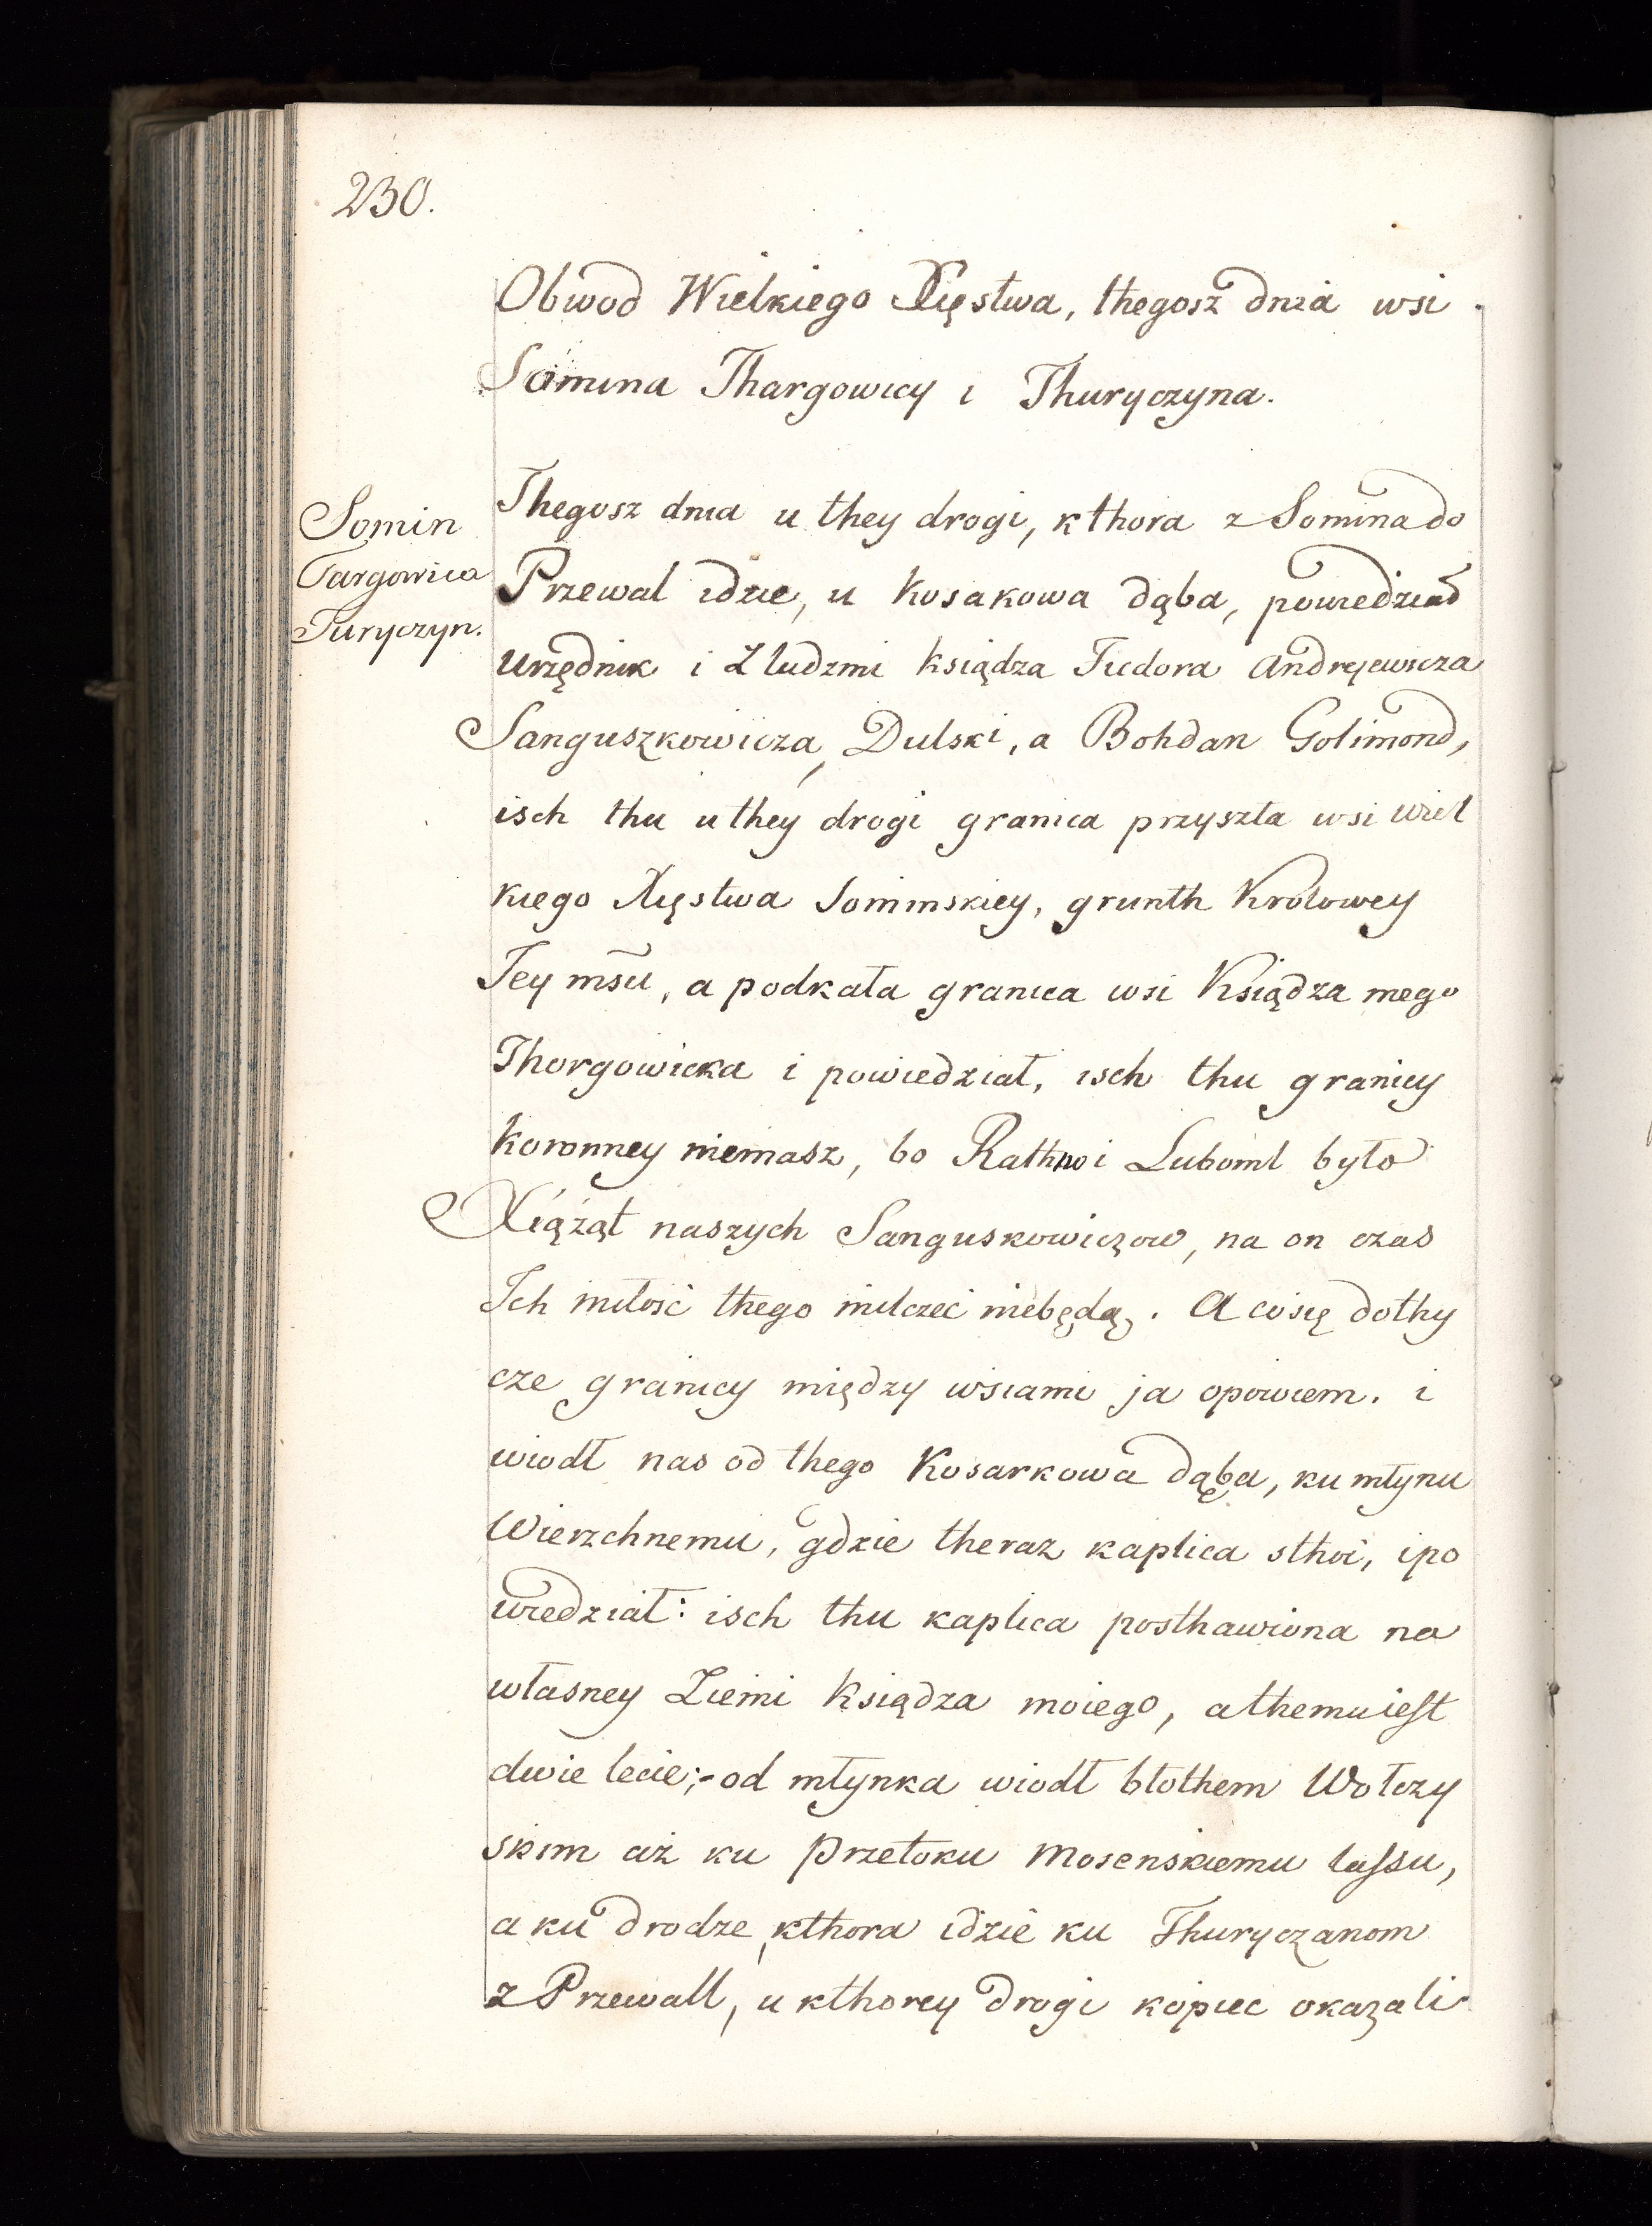 230.
Obwod Wielkiego Xięstwa, thegosz dnia wsi
Somina Thargowicy i Thuryczyna.
Somin
Targowica
Turyczyn.
Thegosz dnia u they drogi, kthora z Somina do
Przewal idzie, u Kosakowa dąba, powiedział
Urzędnik i z ludzmi ksiądza Fiedora Andrejewicza
Sanguszkowicza, Dulski, a Bohdan Golimond,
isch thu u they drogi granica przyszła wsi wiel
kiego Xięstwa Sominskiey, grunth Krolowey
Jey msti, a podkała granica wsi Ksiądza mego
Thorgowicka i powiedział, isch thu granicy
koronney niemasz, bo Rathno i Luboml było
Xiążąt naszych Sanguskowiczow, na on czas
Ich miłość thego milczeć niebędą. A cosię dothy
cze granicy między wsiami ja opowiem. i
wiodł nas od thego Kosarkowa dąba, ku młynu
Wierzchnemu, gdzie theraz kaplica sthoi, ipo
wiedział: isch thu kaplica posthawiona na
własney Ziemi ksiądza moiego, a themu iest
dwie lecie;- od młynka wiodł błothem Wołczy
skim aż ku Przetoku Mosenskiemu lassu,
a ku drodze, kthora idzie ku Thuryczanom
z Przewall, u kthorey drogi kopiec okazali